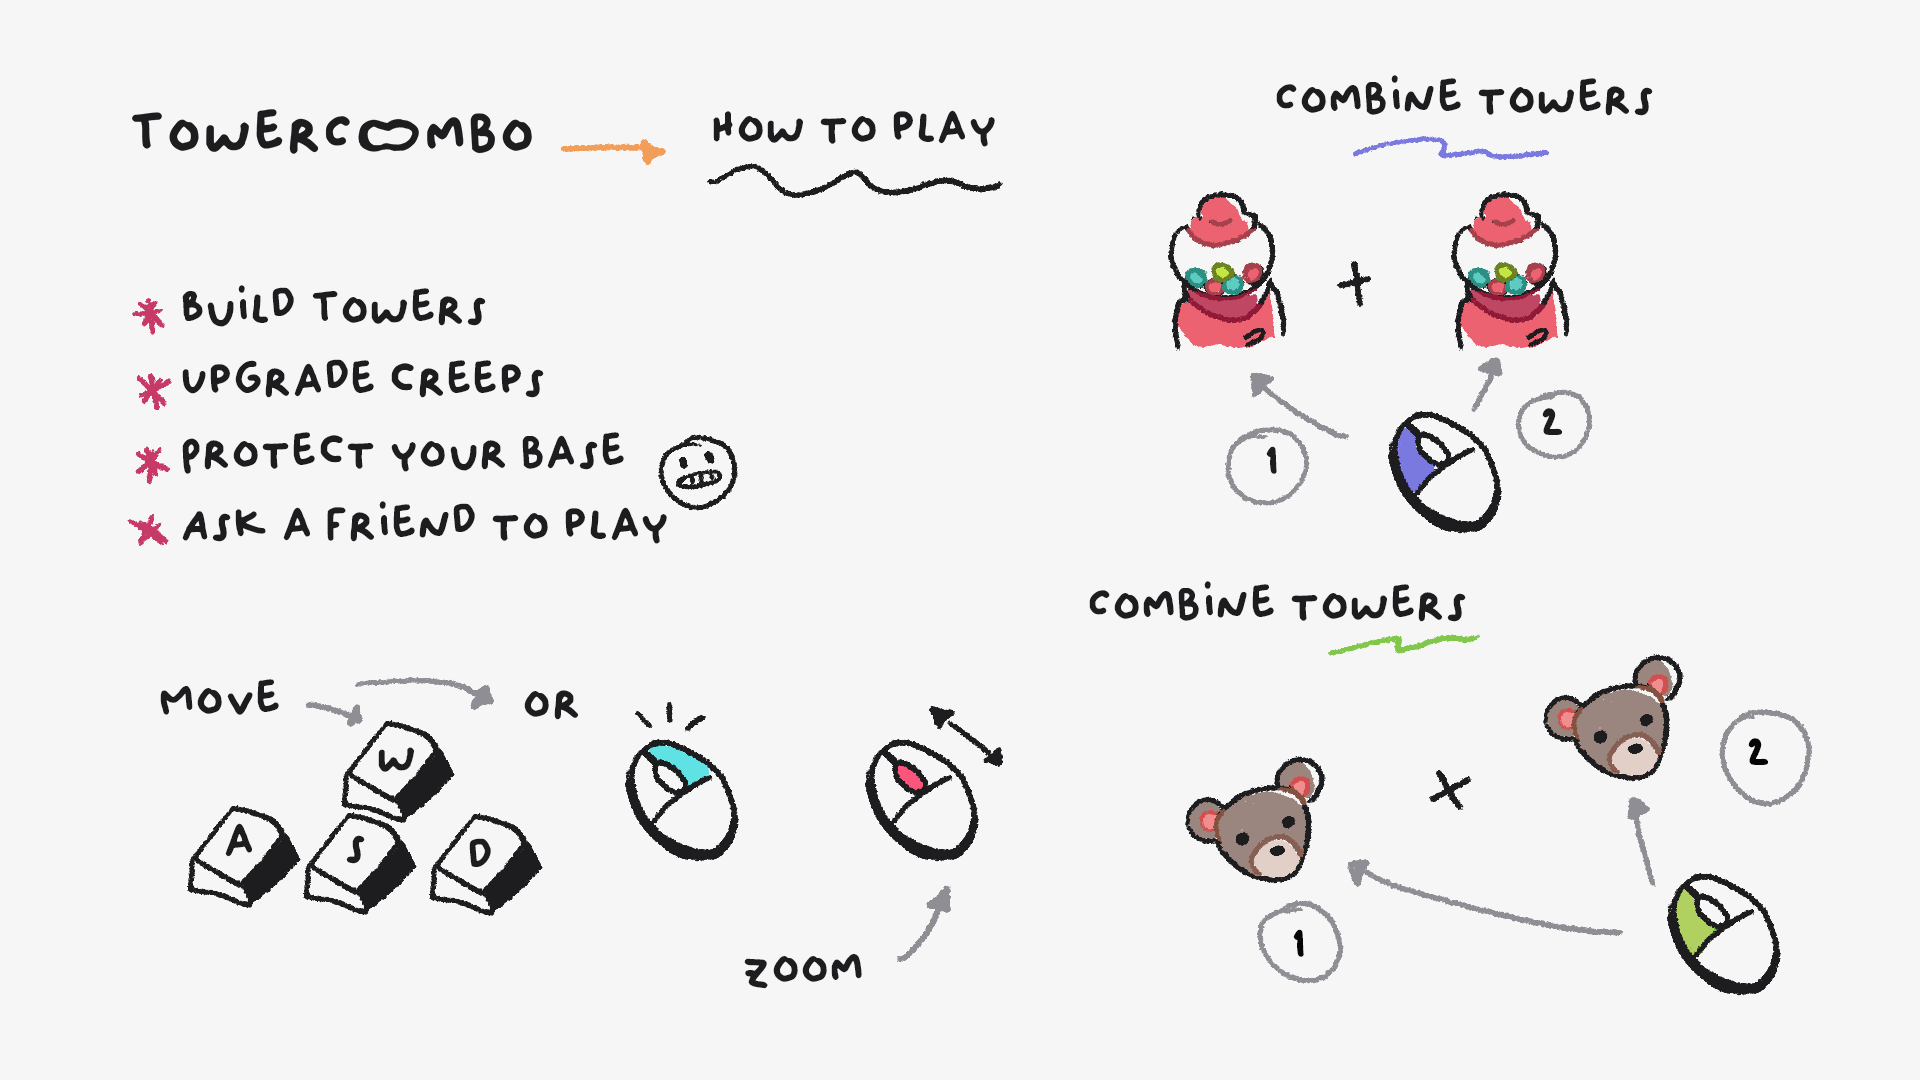 TOWERCOMBO
HOW TO PLAY
* BUILD TOWERS
* UPGRADE CREEPS
* PROTECT YOUR BASE
* ASK A FRIEND TO PLAY
MOVE
OR
W
A S D
ZOOM
COMBINE TOWERS
+
1
2
COMBINE TOWERS
×
2
1